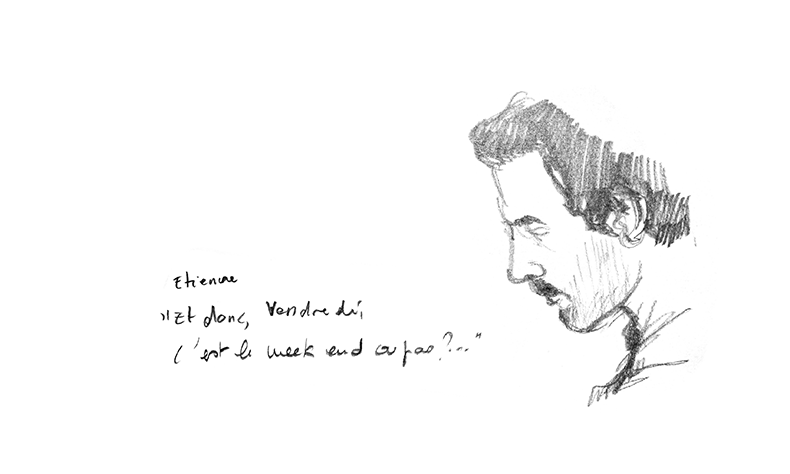 Etienne
"Et donc, Vendredi,
c'est le week end ou pas?..."